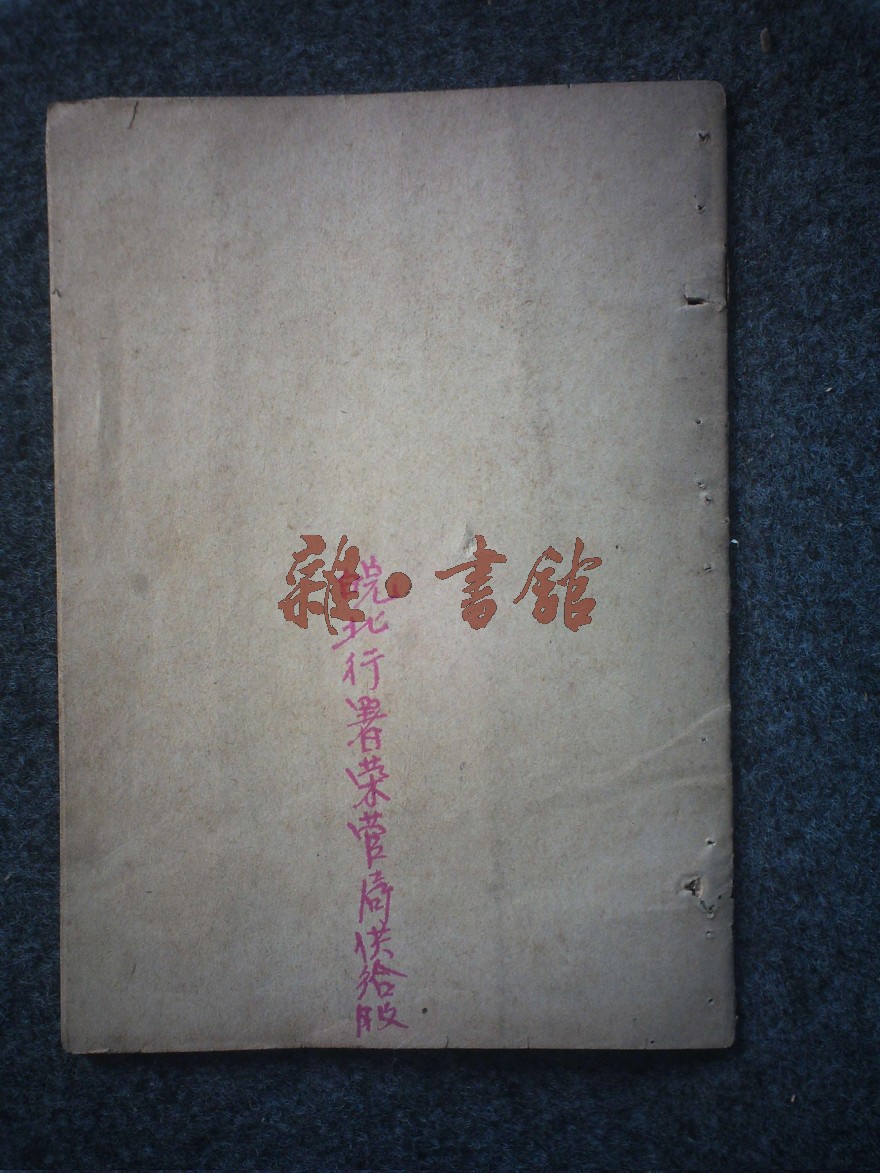 雜·書館
皖北行署荣管局供给股